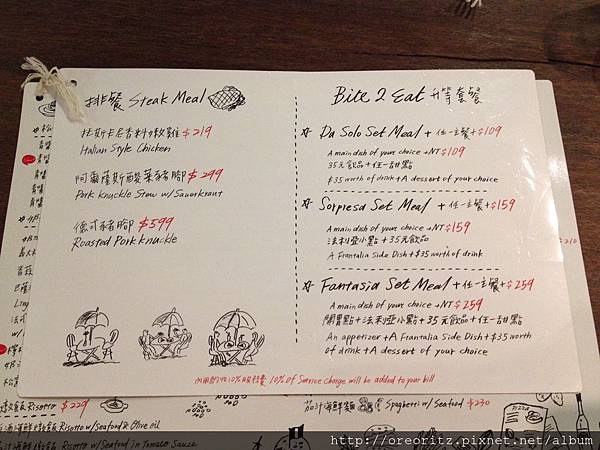 排餐 Steak Meal
托斯卡尼香料嫩雞 $219
Italian Style Chicken
阿爾薩斯酸菜豬腳 $299
Pork Knuckle Stew w/Sauerkraut
德式豬腳 $599
Roasted Pork Knuckle
Bite 2 Eat 升等套餐
Da Solo Set Meal + 任一主餐 +$109
A main dish of your choice +NT$109
35元飲品+任一甜點
$35 worth of drink + A dessert of your choice
Sorpresa Set Meal + 任一主餐 +$159
A main dish of your choice +NT$159
法利亞小點+35元飲品
A Frantalia Side Dish+$35 worth of drink
Fantasia Set Meal + 任一主餐 +$259
A main dish of your choice +NT$259
開胃點+法利亞小點+35元飲品+任一甜點
An appetizer + A Frantalia Side Dish+$35 worth
of drink + A dessert of your choice
10% of Service charge will be added to your bill
$210
Risotto $229
Risotto w/Seafood & Olive oil
Risotto w/Seafood in Tomato Sauce
茄汁海鮮麵
Spaghetti w/Seafood $230
Pizza
http://oreoritz.pixnet.net/album